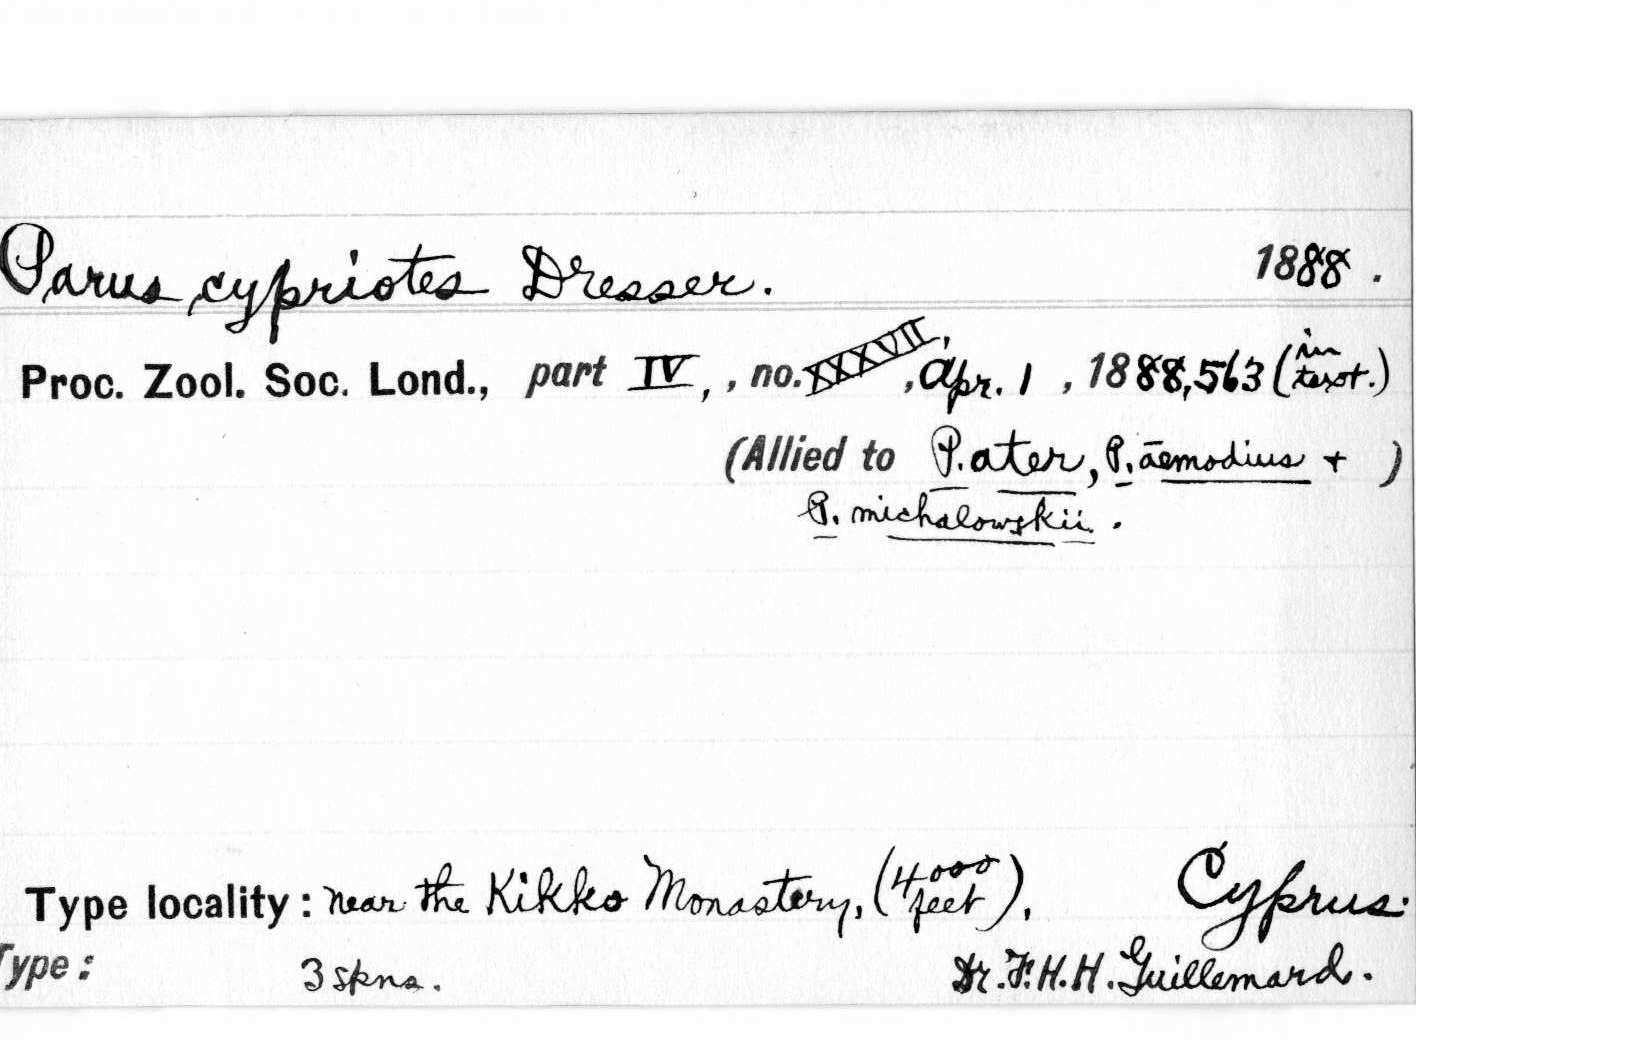 Parus cypriotes Dresser. 1888.
Proc. Zool. Soc. Lond., part IV, , no. XXXVII, , Apr. 1 , 1888, 563 (in text.)
(Allied to P. ater, P. æmodius + )
P. michalowskii.
Type locality: near the Kikko Monastery, (4000 feet), Cyprus.
Type: 3 skns. Dr. F. H. H. Guillemard.